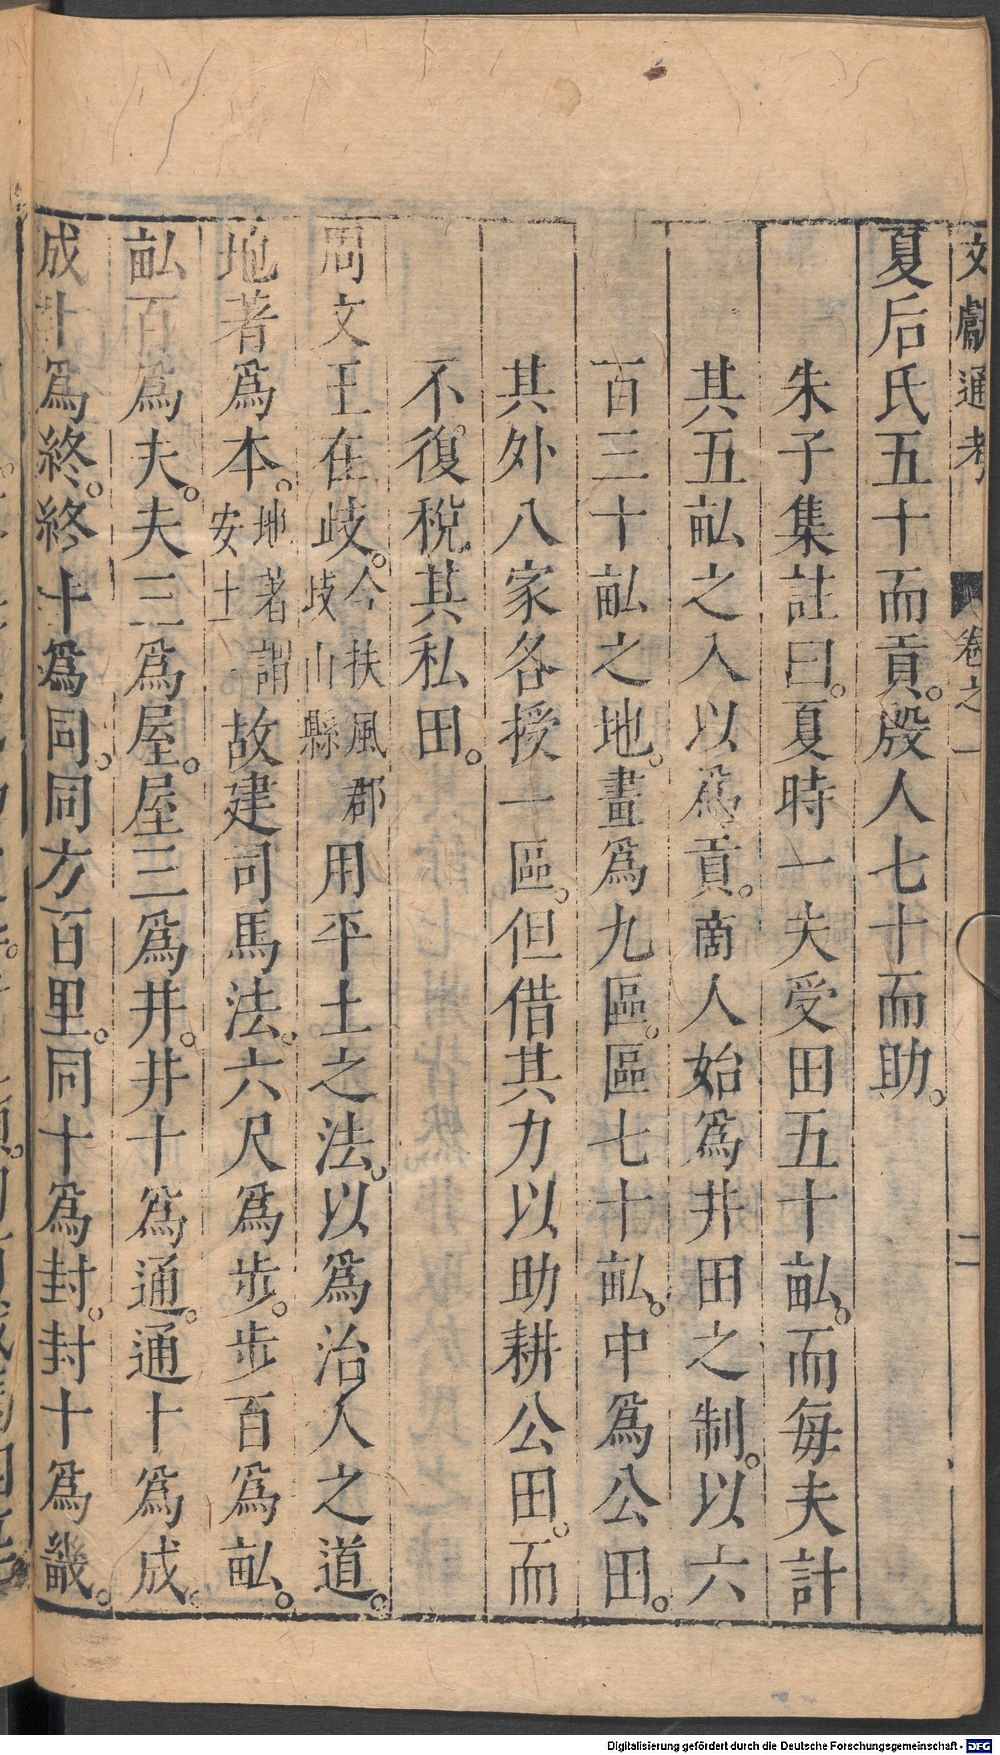 文獻通考 卷之一 二
夏后氏五十而貢。殷人七十而助。
朱子集註曰。夏時一夫受田五十畝。而每夫計
其五畝之入以爲貢。商人始爲井田之制。以六
百三十畝之地。畫爲九區。區七十畝。中爲公田。
其外八家各授一區。但借其力以助耕公田。而
不復稅其私田。
周文王在岐。今扶風郡岐山縣用平土之法。以爲治人之道。
地著爲本。地著謂安土故建司馬法。六尺爲步。步百爲畝。
畝百爲夫。夫三爲屋。屋三爲井。井十爲通。通十爲成。
成十爲終。終十爲同。同方百里。同十爲封。封十爲畿。
Digitalisierung gefördert durch die Deutsche Forschungsgemeinschaft - DFG